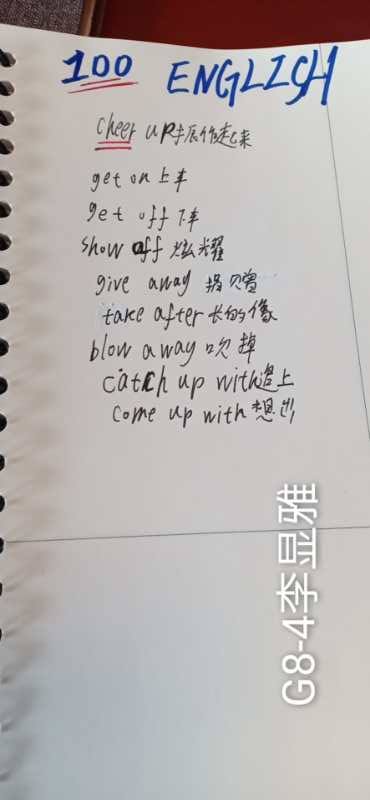 100 ENGLISH
cheer up振作起来
get on上车
get off下车
show off炫耀
give away 捐赠
take after长的像
blow away吹掉
catch up with追上
come up with想出
G8-4李显雅